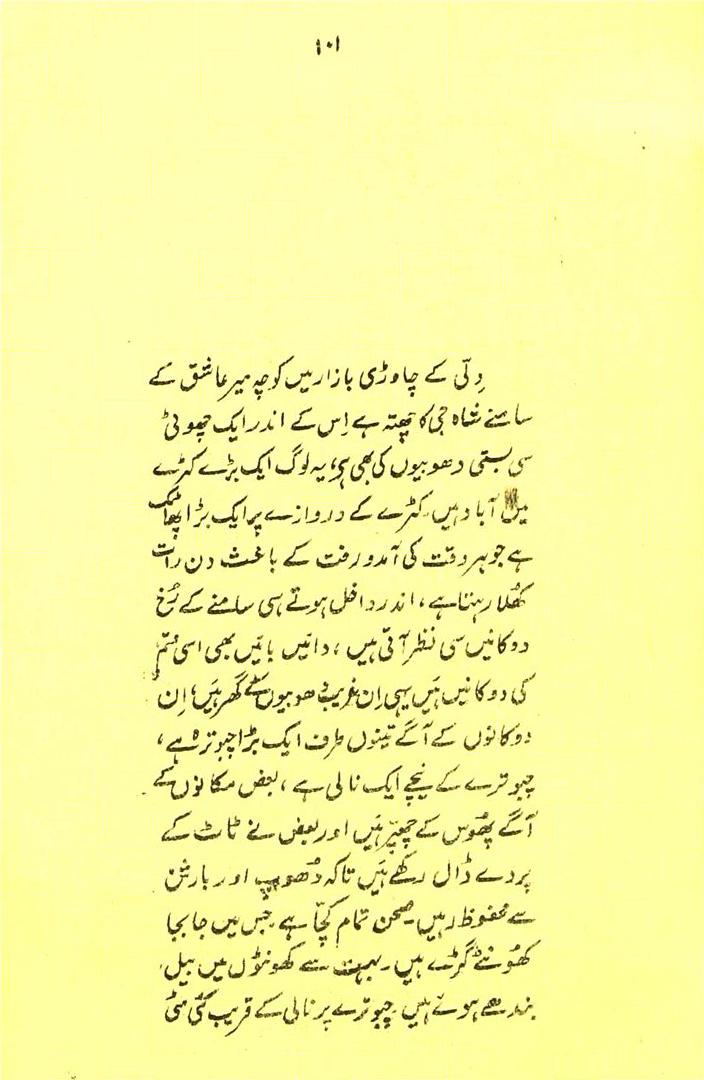 ۱۰۱
دِلّی کے چاوڑی بازار میں کوچہ میر عاشق کے
سامنے شاہ جی کا چھتہ ہے اِس کے اندر ایک چھوٹی
سی بستی دھوبیوں کی بھی ہی، یہ لوگ ایک بڑے کٹرے
میں آباد ہیں۔ کٹرے کے دروازے پر ایک بڑا پھاٹک
ہے جو ہر وقت کی آمد و رفت کے باعث دن رات
کھُلا رہتا ہے، اندر داخل ہوتے ہی سامنے کے رُخ
دوکانیں سی نظر آتی ہیں، دائیں بائیں بھی اسی قسم
کی دوکانیں ہیں یہی اِن غریب دھوبیوں کے گھر ہیں، اِن
دوکانوں کے آگے تینوں طرف ایک بڑا چبوترہ ہے،
چبوترے کے نیچے ایک نالی ہے، بعض مکانوں کے
آگے پھُوس کے چھپّر ہیں اور بعض نے ٹاٹ کے
پردے ڈال رکھے ہیں تاکہ دُھوپ اور بارش
سے محفوظ رہیں۔ صحن تمام کچّا ہے جس میں جا بجا
کھُونٹے گڑے ہیں۔ بہت سے کھونٹوں میں بیل
بندھے ہوئے ہیں۔ چبوترے پر نالی کے قریب کئی مٹی